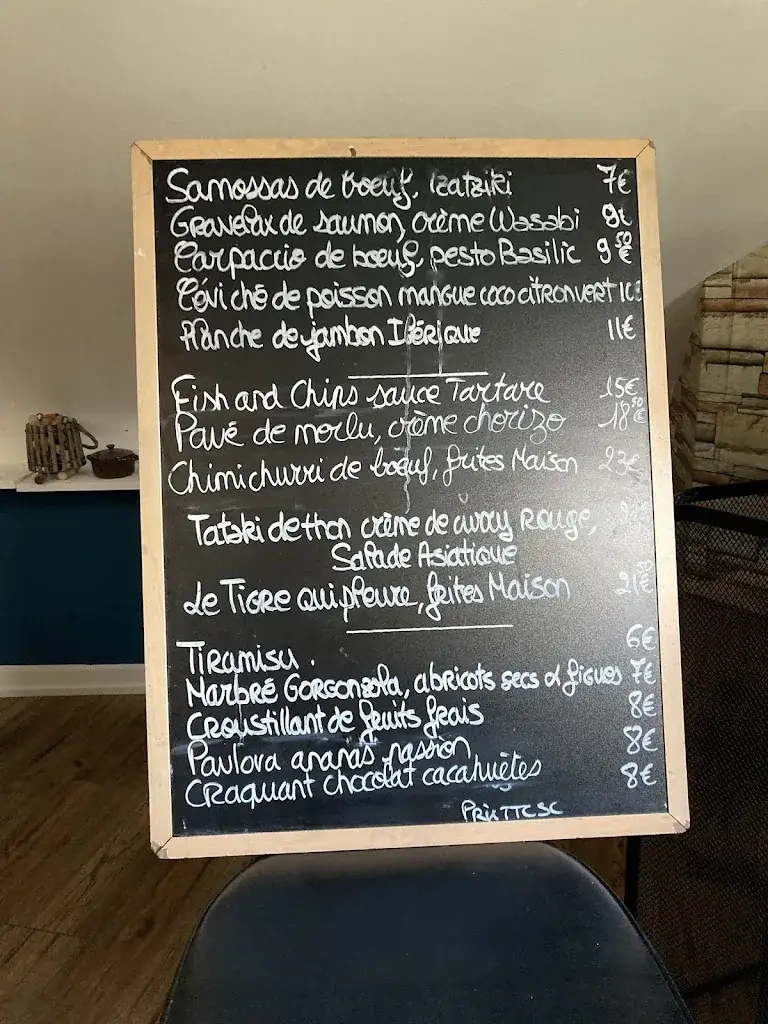 Samossas de boeuf, Tzatziki 7€
Gravelax de saumon, crème Wasabi 9€
Carpaccio de boeuf, pesto Basilic 9€50
Céviché de poisson mangue coco citron vert
Planche de jambon Ibérique 11€
Fish and Chips sauce Tartare 15€
Pavé de morlu, crème chorizo 18€50
Chimichurri de boeuf, frites Maison 23€
Tataki de thon crème de curry Rouge,
Salade Asiatique
Le Tigre qui pleure, frites Maison 21€50
Tiramisu. 6€
Marbré Gorgonzola, abricots secs & figues 7€
Croustillant de fruits frais 8€
Pavlova ananas passion 8€
Craquant chocolat cacahuètes 8€
Prix TTC SC